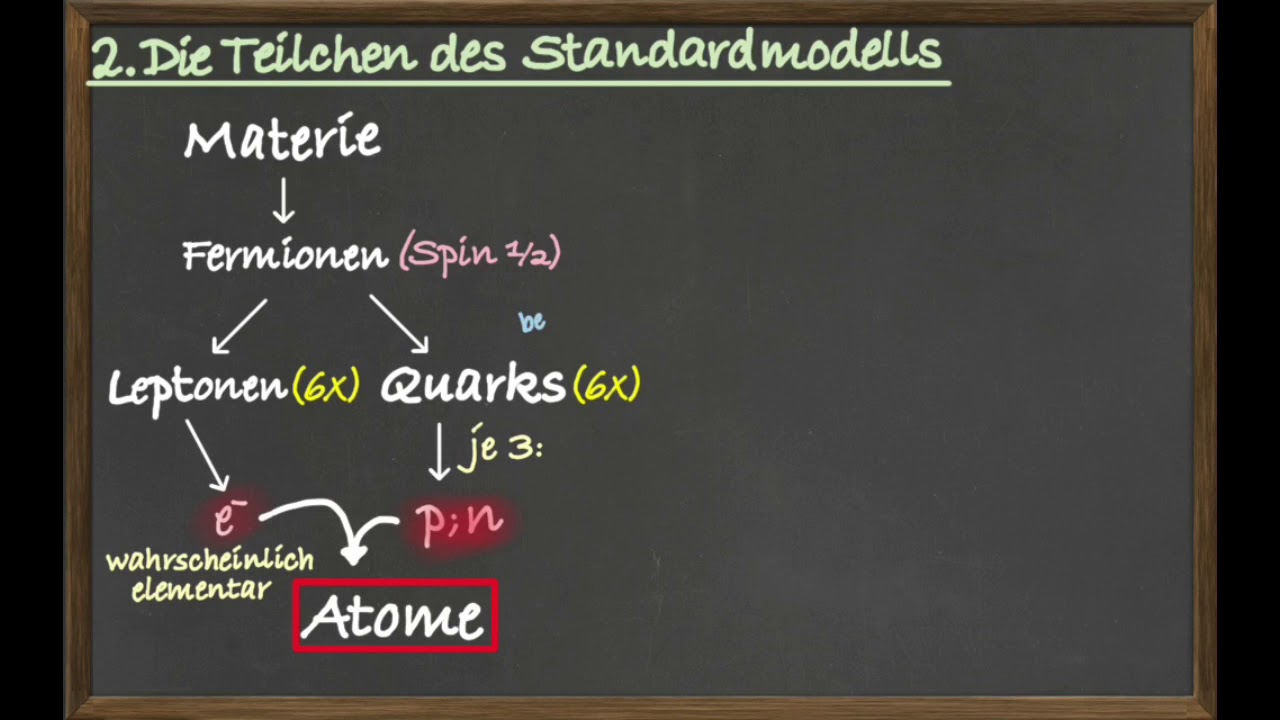 2. Die Teilchen des Standardmodells
Materie
Fermionen (Spin 1/2)
be
Leptonen (6x) Quarks (6x)
je 3:
e⁻ p; n
wahrscheinlich
elementar
Atome